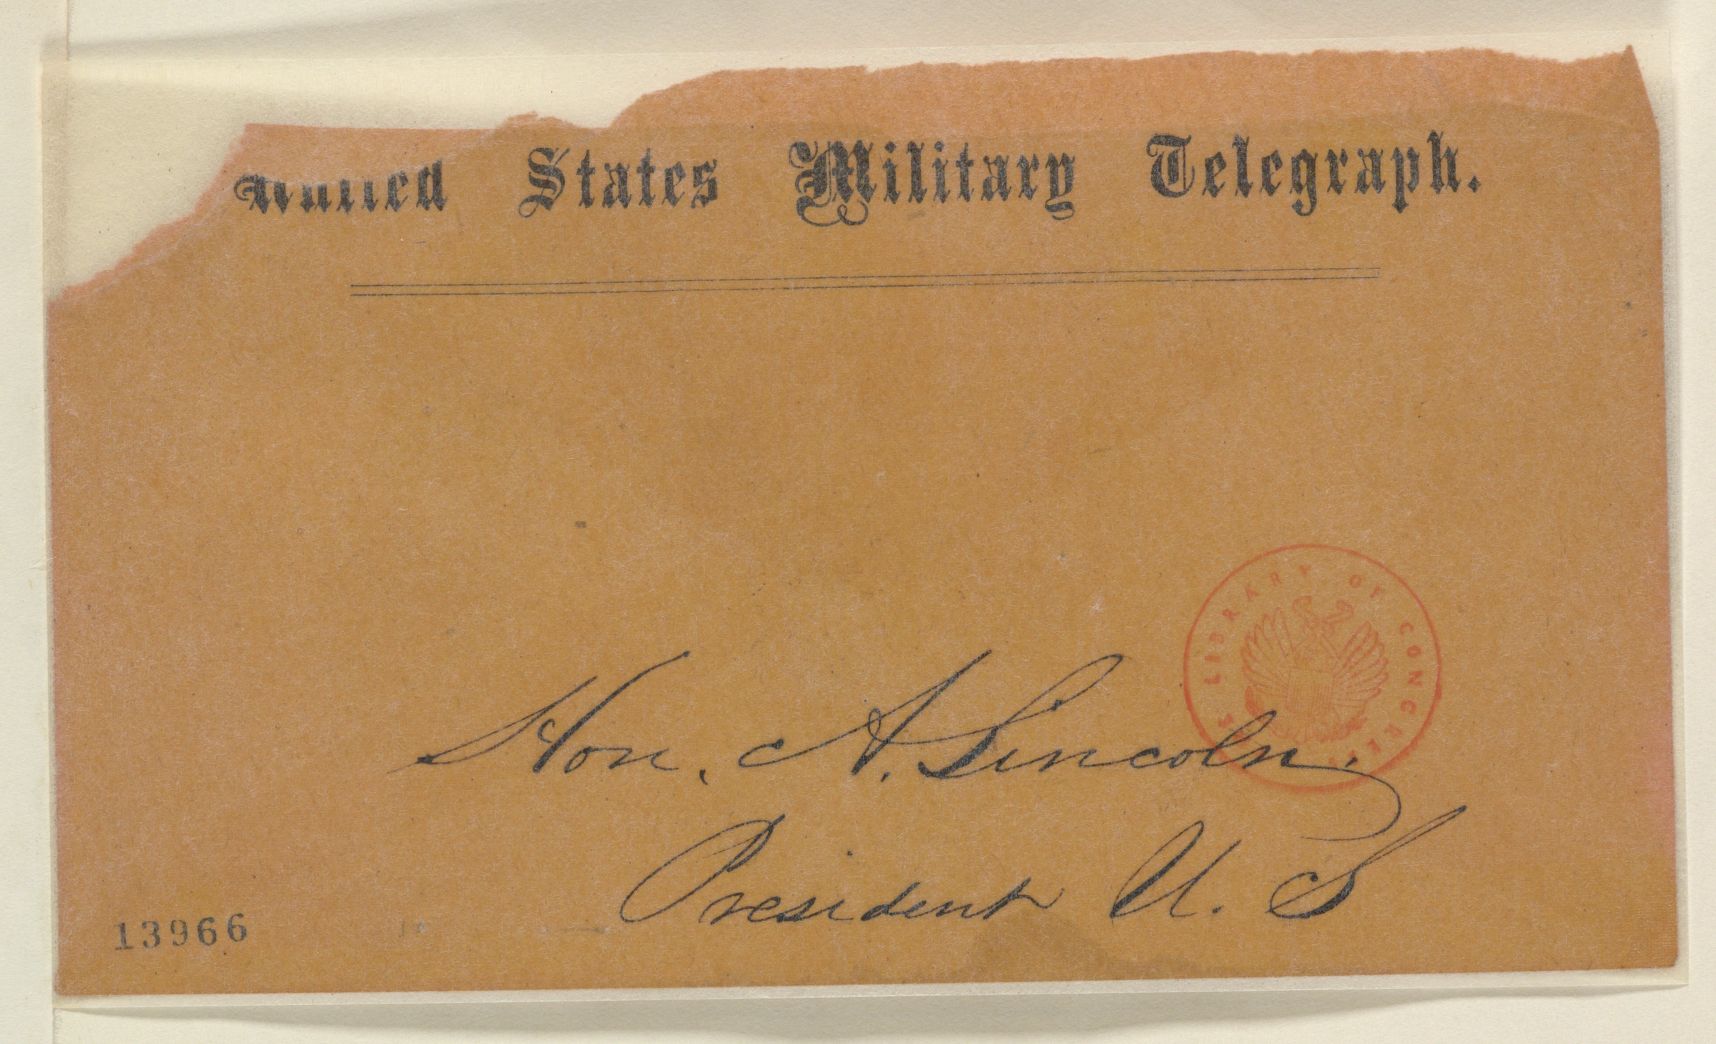 United States Military Telegraph.
LIBRARY OF CONGRESS
Hon. A. Lincoln.
President U. S
13966